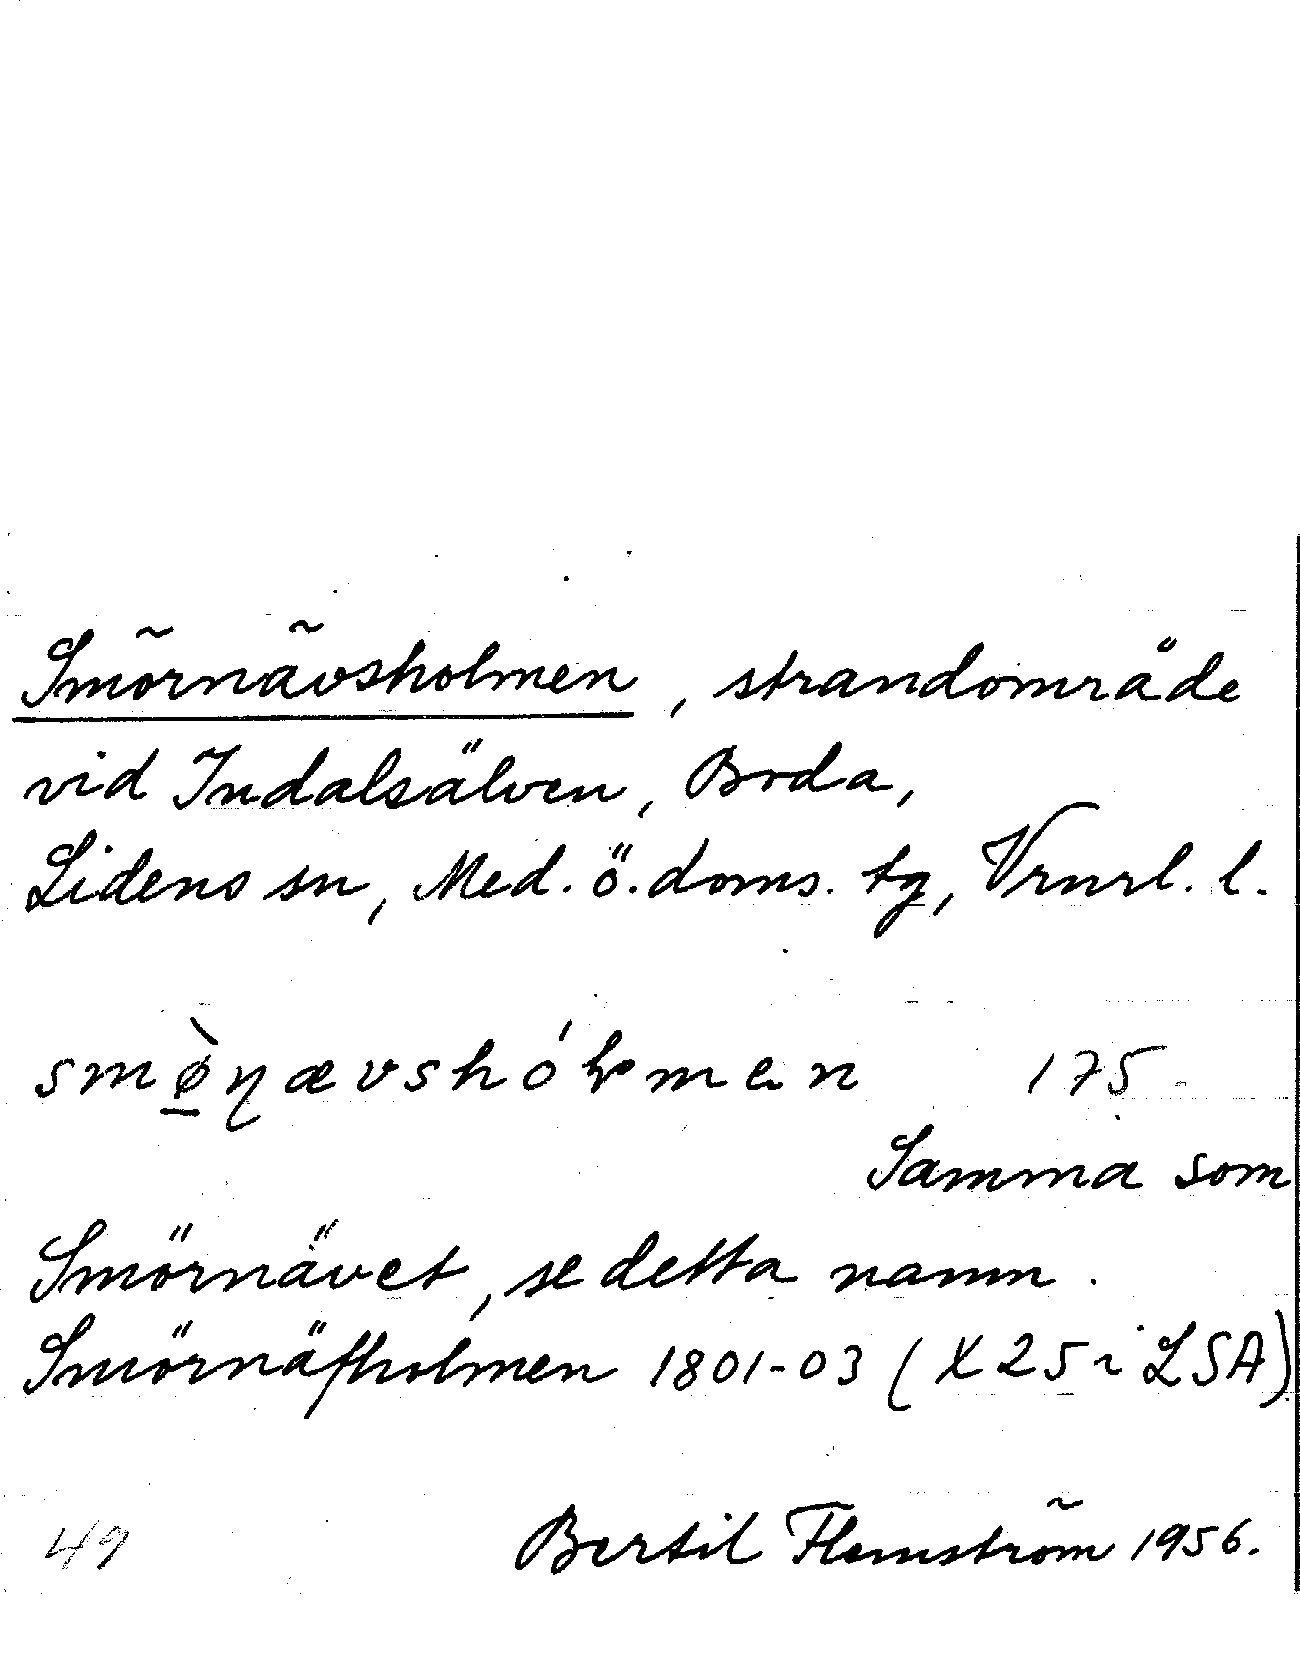 Smörnävsholmen, strandområde
vid Indalsälven, Boda,
Lidens sn, Med. ö. doms. tg, Vrnrl. l.
175
Samma som
Smörnävet, se detta namn.
Smörnäfsholmen 1801-03 (X25 i LSA)
49 Bertil Flemström 1956.